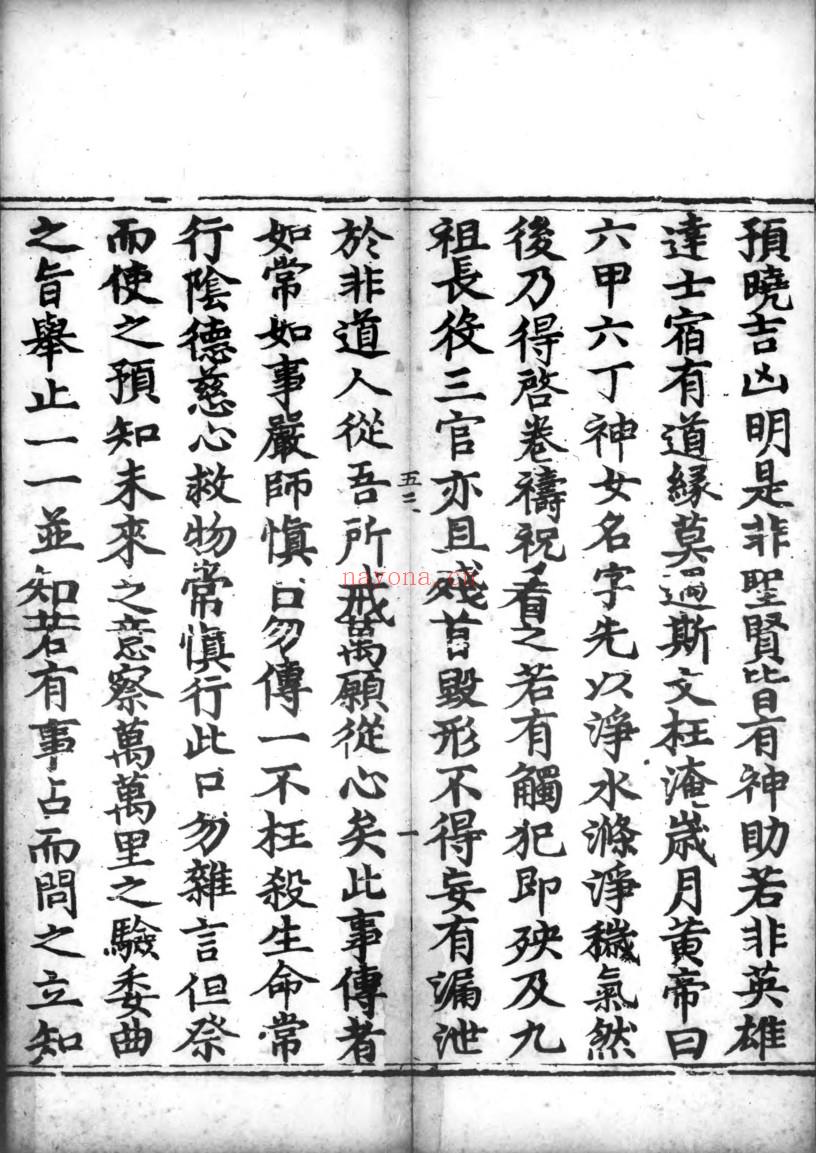 預曉吉凶明是非聖賢皆有神助若非英雄
達士宿有道緣莫過斯文枉淹歲月黃帝曰
六甲六丁神女名字先以淨水滌淨穢氣然
後乃得啓卷禱祝看之若有觸犯即殃及九
祖長役三官亦且殘苦毀形不得妄有漏泄
五三
一
於非道人從吾所戒萬願從心矣此事傳者
如常如事嚴師慎口勿傳一不枉殺生命常
行陰德慈心救物常慎行此口勿雜言但祭
而使之預知未來之意察萬萬里之驗委曲
之旨舉止一一並知若有事占而問之立知
nayona.cn